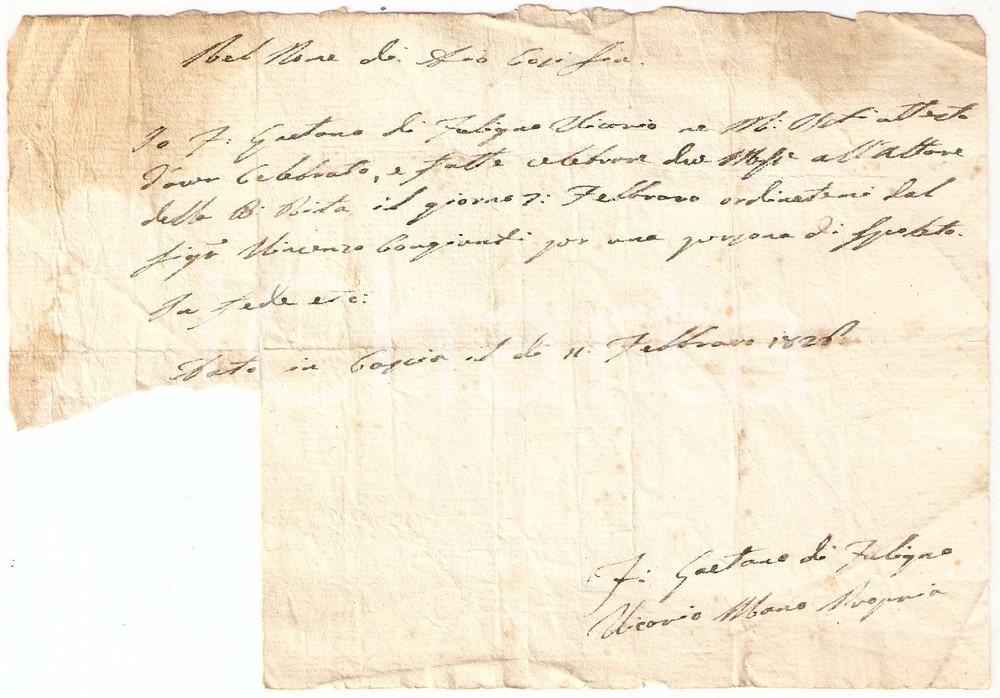 Nel Nome di Dio Cosi sia.
Io F: Gaetano di Fuligno Vicario ne M: attesto
d'aver Celebrato, e fatte celebrare due Messe all'Altare
della B: Rita il giorno 7: Febbraro ordinatemi dal
Sigr Vincenzo Congiundi per una persona di Spoleto.
In fede etc:
Dato in Cascia il dì 11: Febbraro
F: Gaetano di Fuligno
Vicario Mano Propria